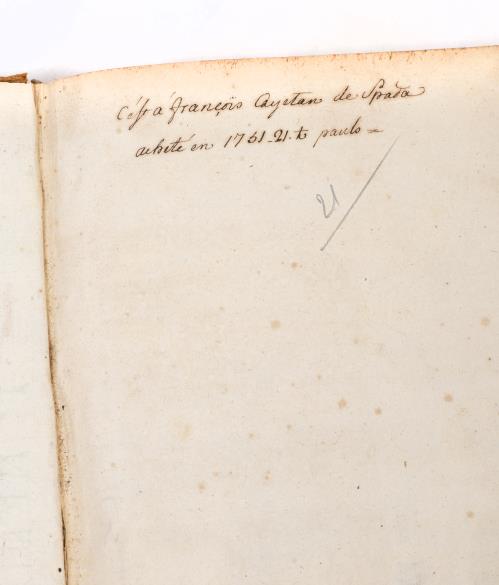 C'est à François Cayetan de Spada
acheté en 1751 21. pauls =
21